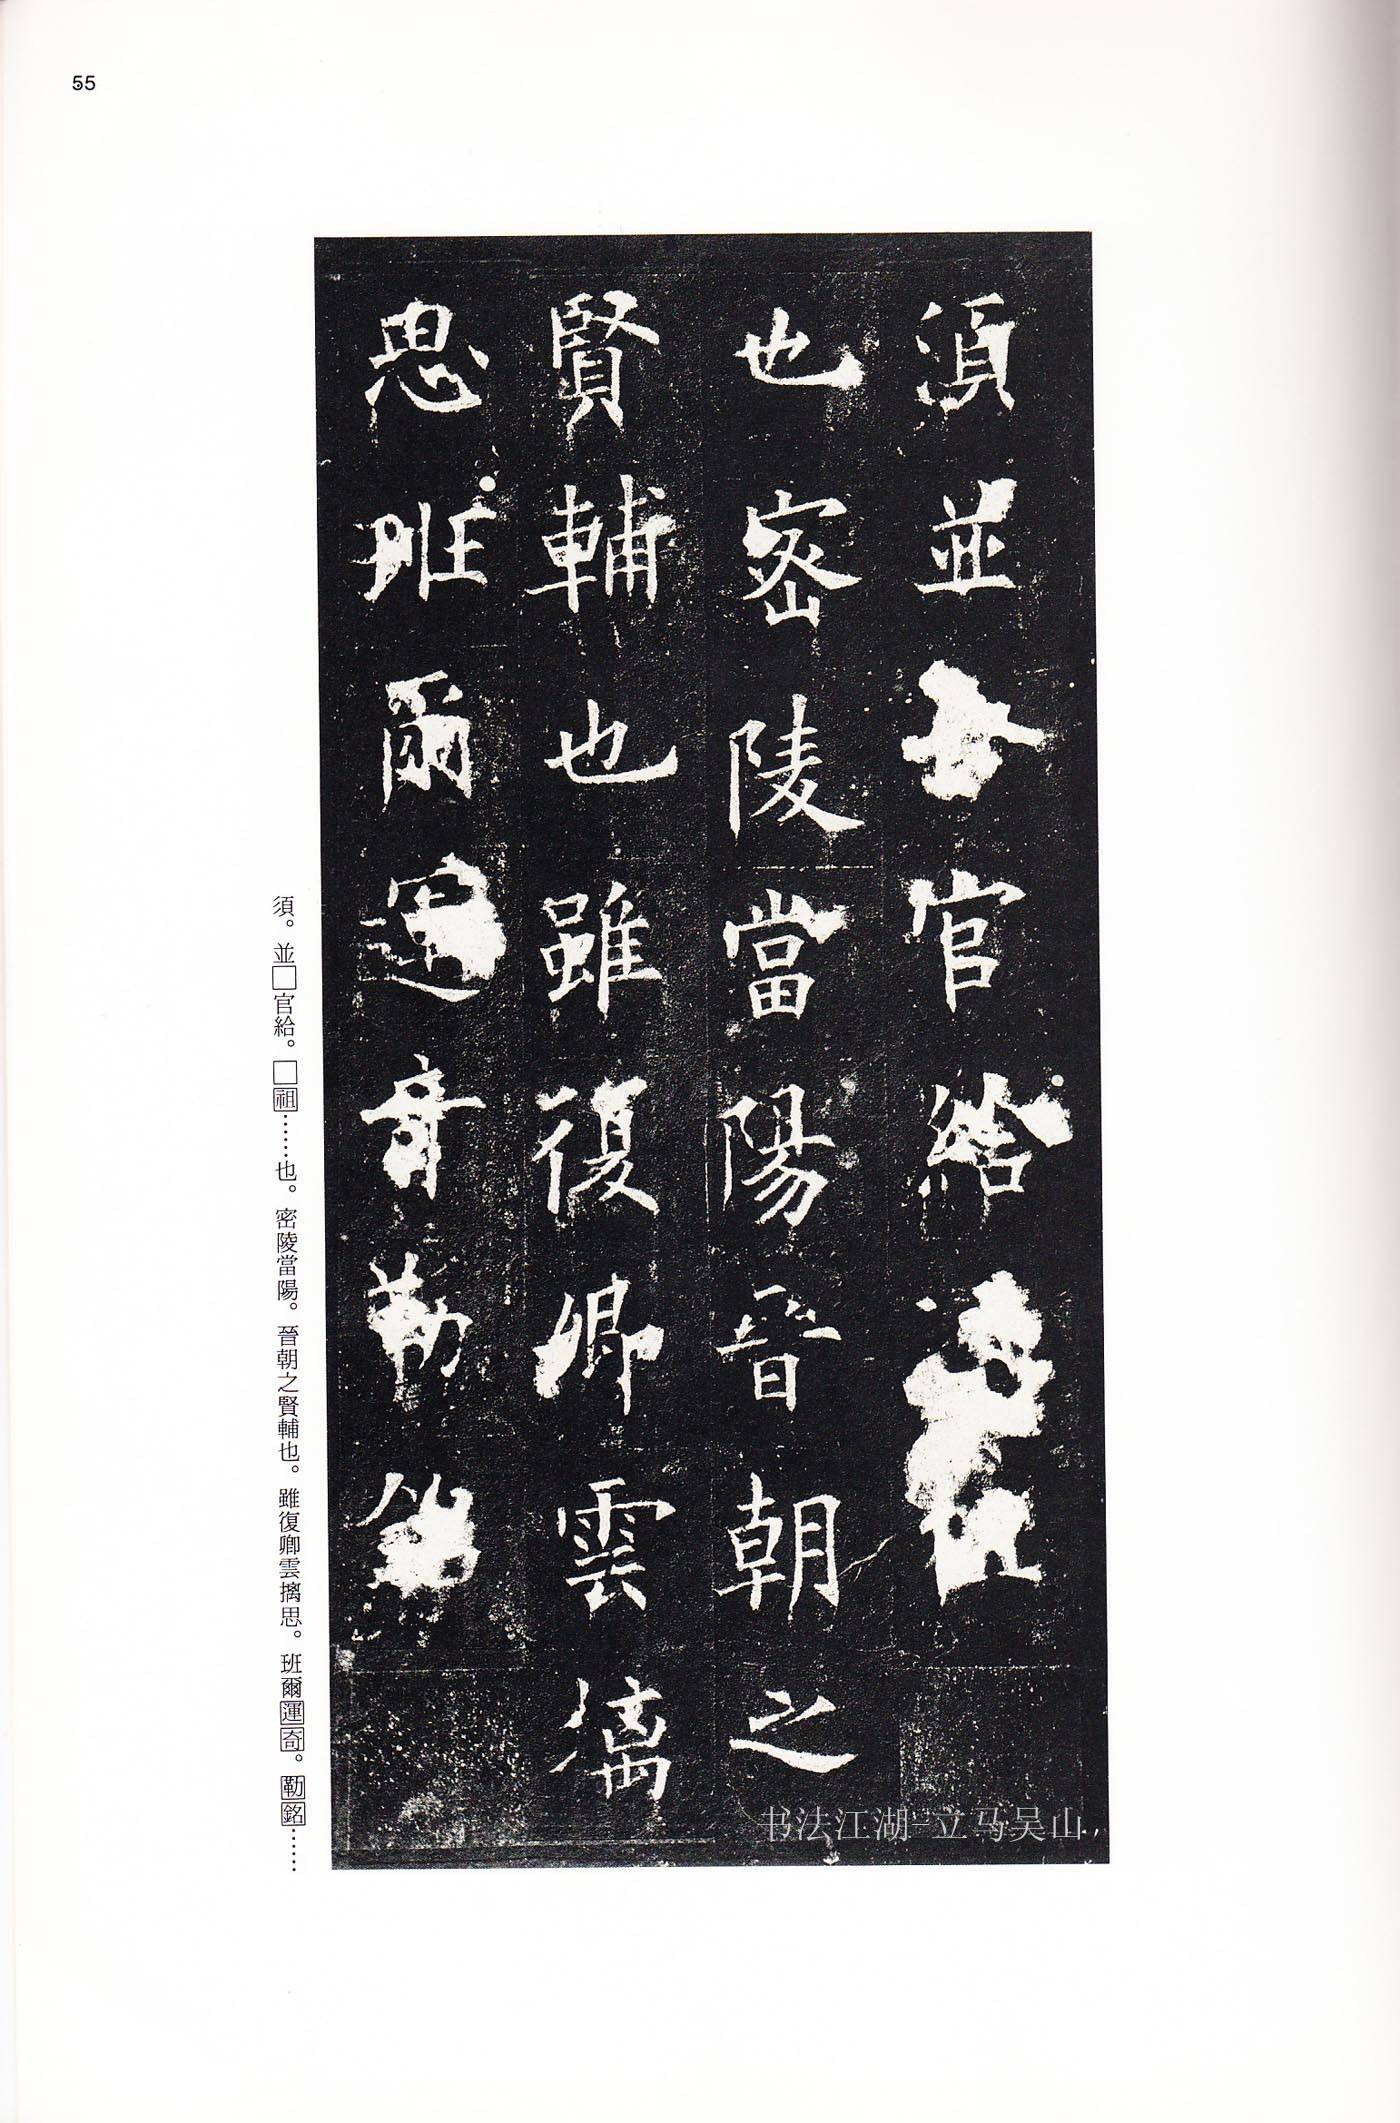 55
須並
官給
也密陵當陽晉朝之
賢輔也雖復卿雲摛
思班爾運奇勒銘
須。並□官給。□祖……也。密陵當陽。晉朝之賢輔也。雖復卿雲摛思。班爾運奇。勒銘……
书法江湖-立马吴山